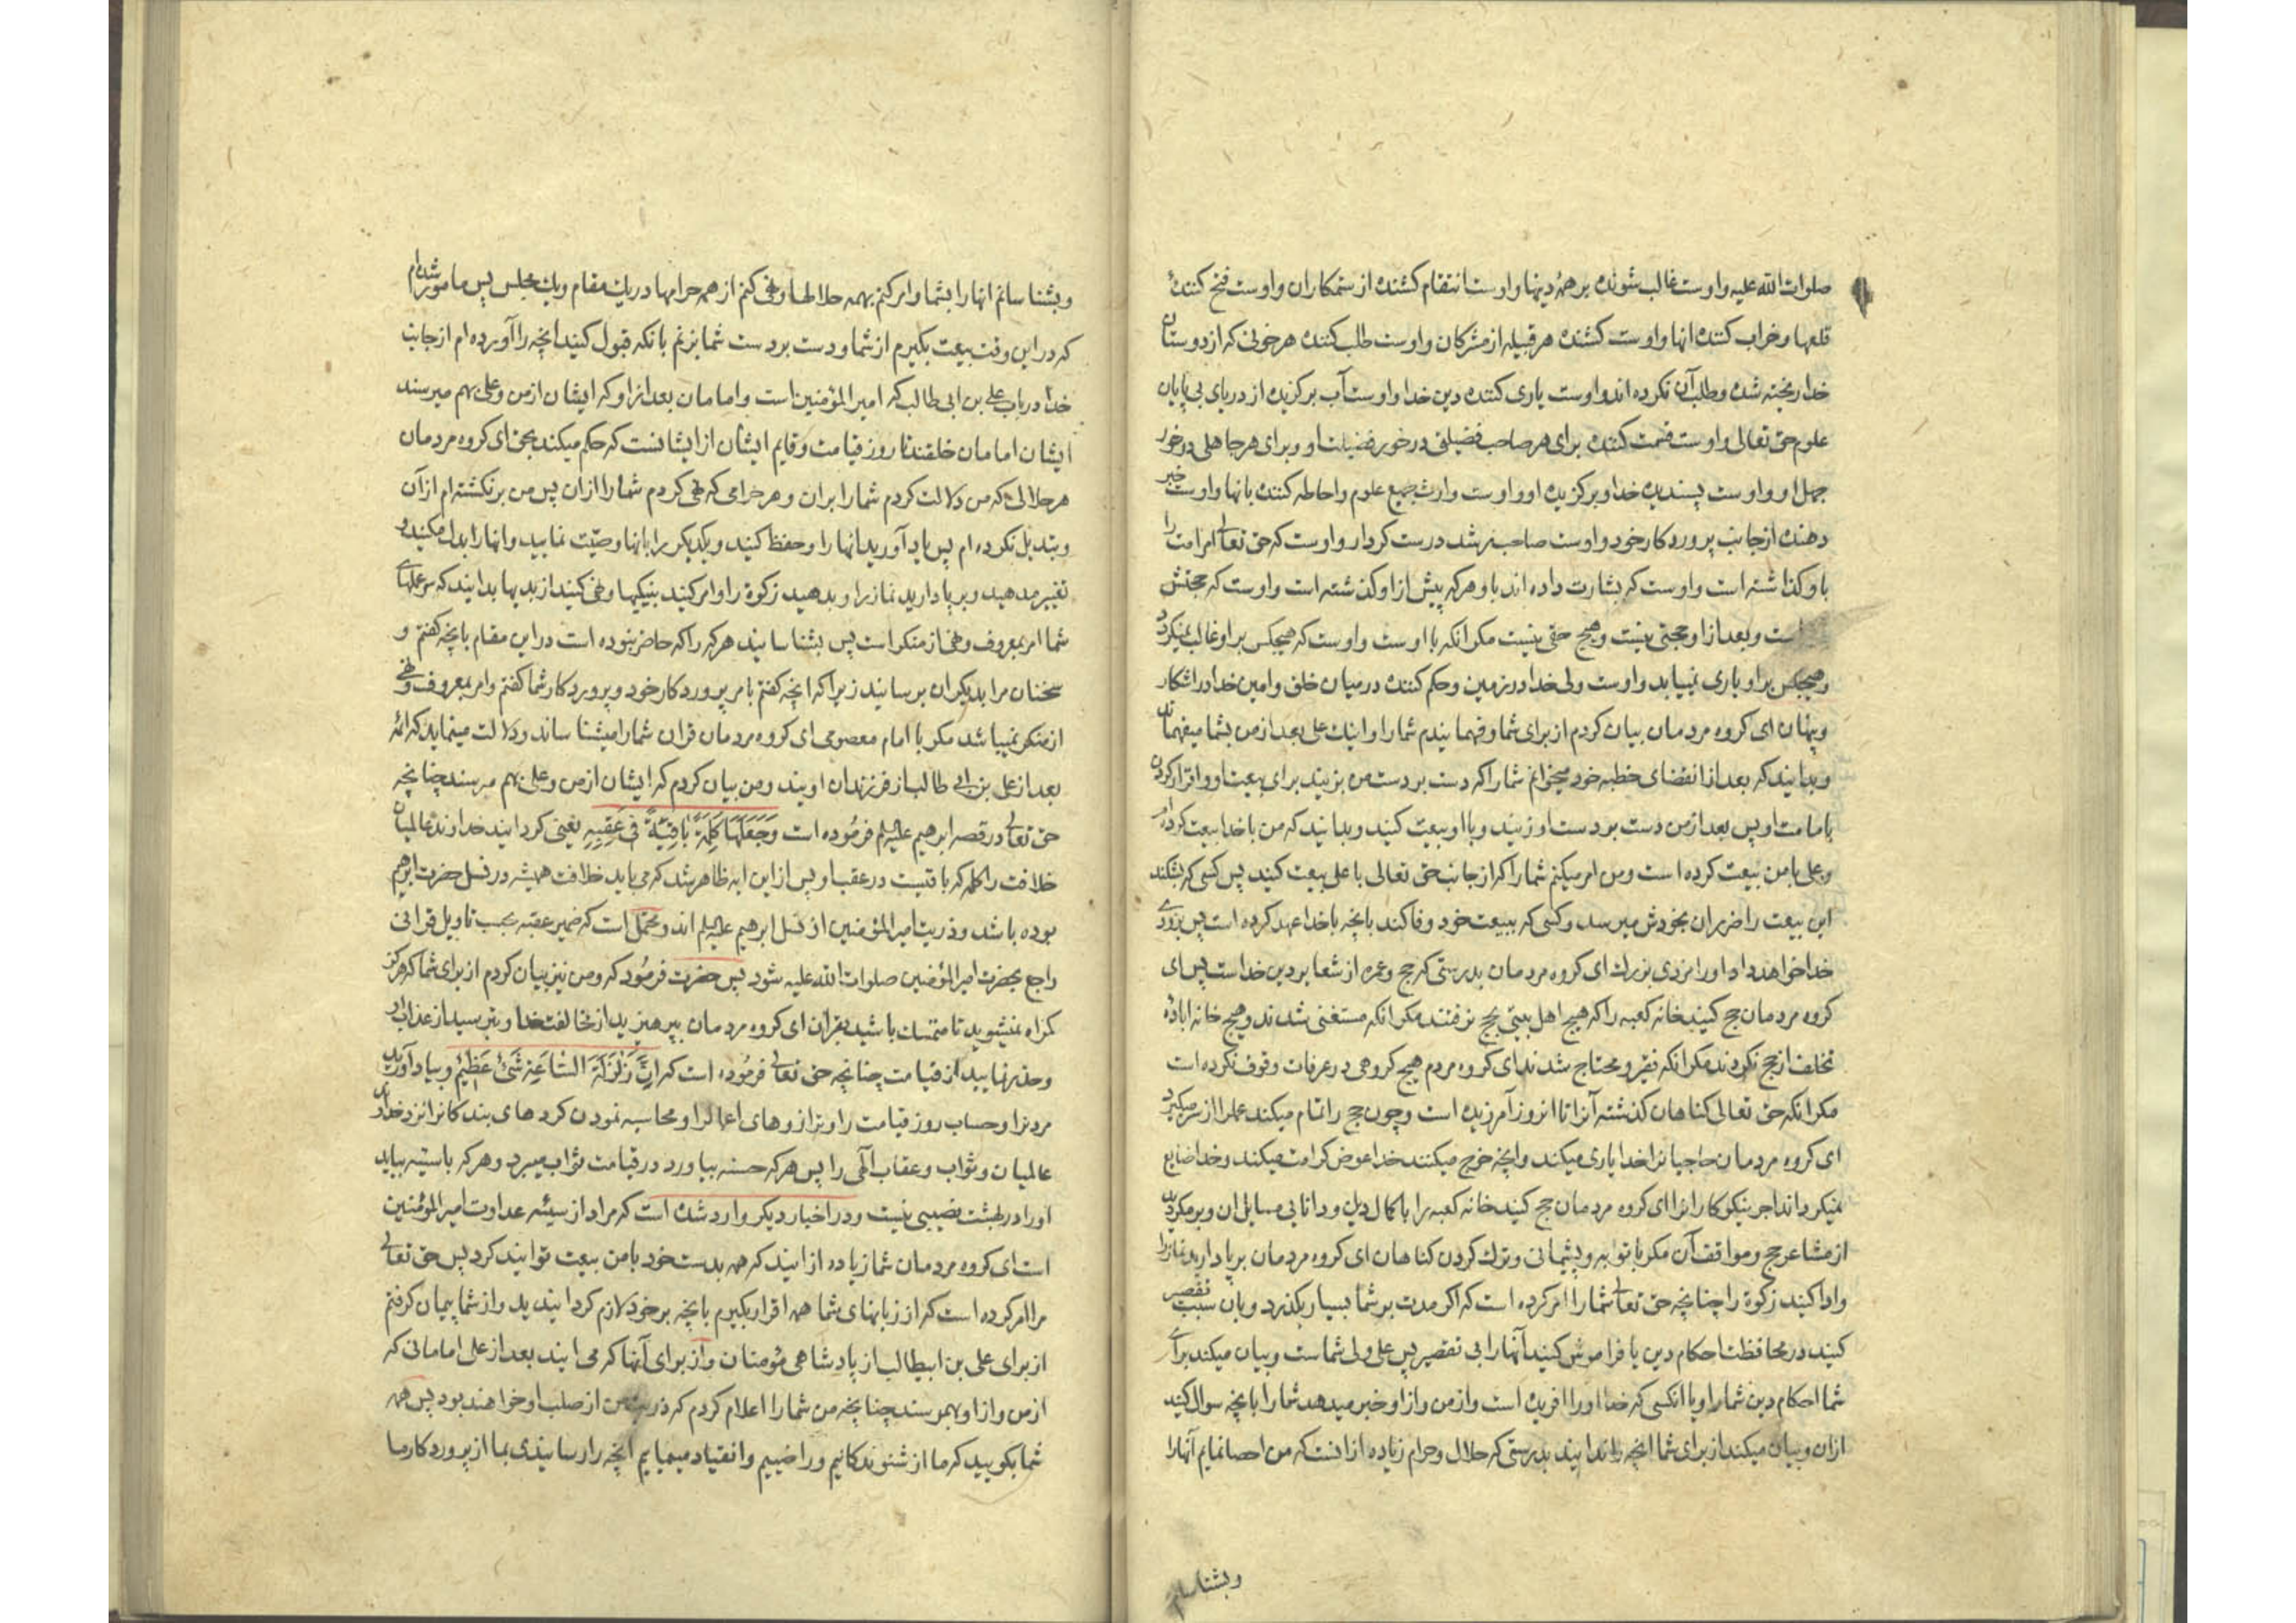 صلوات الله علیه و اوست غالب شونده بر همهٔ دینها و اوست انتقام کشنده از ستمکاران و اوست فتح کنندهٔ
قلعها و خراب کننده انها و اوست کشنده هر قبیله از مشرکان و اوست طلب کننده هر خونی که از دوستان
خدا ریخته شده و طلب آن نکرده اند و اوست یاری کننده دین خدا و اوست آب برگزیده از دریای بی پایان
علوم حق تعالی و اوست قسمت کننده برای هر صاحب فضیلتی در خور فضیلت او و برای هر جاهلی در خور
جهل او و اوست پسندیده خدا و برگزیده او و اوست وارث جمیع علوم و احاطه کننده بانها و اوست خبر
دهنده از جانب پروردکار خود و اوست صاحب رشد درست کردار و اوست که حق تعالی امر امت را
باو کذاشته است و اوست که بشارت داده اند باو هر که پیش از او کذشته است و اوست که حجتش
است و بعد از او حجتی نیست و هیچ حقی نیست مکر انکه با اوست و اوست که هیچکس بر او غالب نمیکردد
و هیچکس بر او یاری نمییابد و اوست ولی خدا در زمین و حکم کننده در میان خلق و امین خدا در اشکار
و پنهان ای کروه مردمان بیان کردم از برای شما و فهمانیدم شما را و اینک علی بعد از من بشما میفهماند
و بدانید که بعد از انقضای خطبه خود میخوانم شما را که دست بر دست من بزنید برای بیعت او و اقرار کردن
بامامت او پس بعد از من دست بر دست او زنید و با او بیعت کنید و بدانید که من با خدا بیعت کرده ام
و علی با من بیعت کرده است و من امر میکنم شما را که از جانب حق تعالی با علی بیعت کنید پس کسی که بشکند
این بیعت را ضرر ان بخودش میرسد و کسی که ببیعت خود وفا کند بانچه با خدا عهد کرده است پس بزودی
خدا خواهد داد او را مزدی بزرک ای کروه مردمان بدرستی که حج و عمره از شعایر دین خداست پس ای
کروه مردمان حج کنید خانه کعبه را که هیچ اهل بیتی بحج نرفتند مکر انکه مستغنی شدند و هیچ خانه اباده
تخلف از حج نکردند مکر انکه فقیر و محتاج شدند ای کروه مردم هیچ کروهی در عرفات وقوف نکرده است
مکر انکه حق تعالی کناهان کذشته آنرا تا انروز آمرزیده است و چون حج را تمام میکند عمل را از سر میکیرد
ای کروه مردمان حاجیانرا خدا یاری میکند و انچه خرج میکنند خدا عوض کرامت میکند و خدا ضایع
نمیکرداند اجر نیکوکارانرا ای کروه مردمان حج کنید خانه کعبه را با کمال دین و دانایی مسایل ان و برمکردید
از مشاعر حج و مواقف آن مکر با توبه و پشیمانی و ترک کردن کناهان ای کروه مردمان برپا دارید نماز را
و ادا کنید زکوة را چنانچه حق تعالی شما را امر کرده است که اکر مدت بر شما بسیار بکذرد و بان سبب تقصیر
کنید در محافظت احکام دین یا فراموش کنید آنها را بی تقصیر پس علی ولی شماست و بیان میکند برای
شما احکام دین شما را و با انکسی که خدا او را افریده است و از من و از او خبر میدهد شما را بانچه سوال کنید
ازان و بیان میکند از برای شما انچه را ندانید بدرستی که حلال و حرام زیاده از انست که من احصا نمایم آنها را
و بشناسانم
و بشناسانم انها را بشما و امر کنم بهمه حلالها و نهی کنم از همه حرامها در یک مقام و یک مجلس پس مامور شده ام
که در این وقت بیعت بکیرم از شما و دست بر دست شما بزنم بانکه قبول کنید انچه را آورده ام از جانب
خدا در باب علی بن ابی طالب که امیر المؤمنین است و امامان بعد از او که ایشان از من و علی بهم میرسند
ایشان امامان خلقند تا روز قیامت و قایم ایشان از ایشانست که حکم میکند بحق ای کروه مردمان
هر حلالی که من دلالت کردم شما را بران و هر حرامی که نهی کردم شما را ازان پس من برنکشته ام از آن
و تبدیل نکرده ام پس یاد آورید انها را و حفظ کنید و یکدیکر را بانها وصیّت نمایید و انها را بدل مکنید و
تغییر مدهید و برپا دارید نماز را و بدهید زکوة را و امر کنید بنیکیها و نهی کنید از بدیها بدانید که سر عملهای
شما امر بمعروف و نهی از منکر است پس بشناسانید هر که را که حاضر نبوده است در این مقام بانچه کفتم و
سخنان مرا بدیکران برسانید زیرا که انچه کفتم بامر پروردکار خود و پروردکار شما کفتم و امر بمعروف و نهی
از منکر نمیباشد مکر با امام معصومی ای کروه مردمان قران شما را میشناساند و دلالت مینماید که ائمه
بعد از علی بن ابی طالب از فرزندان اویند و من بیان کردم که ایشان از من و علی بهم میرسند چنانچه
حق تعالی در قصه ابرهیم علیه السلم فرمُوده است وَجَعَلَهَا كَلِمَةً بَاقِيَةً فِي عَقِبِهِ یعنی کردانید خداوند عالمیان
خلافت را کلمه که باقیست در عقب او پس از این ایه ظاهر شد که می باید خلافت همیشه در نسل حضرت ابرهیم
بوده باشد و ذریت امیر المؤمنین از نسل ابرهیم علیه السلم اند و محتمل است که ضمیر عقبه بحسب تاویل قرانی
راجع بحضرت امیر المؤمنین صلوات الله علیه شود پس حضرت فرمُود که و من نیز بیان کردم از برای شما که هرکز
کمراه نمیشوید تا متمسک باشید بقران ای کروه مردمان بپرهیزید از مخالفت خدا و بترسید از عذاب او
و حذر نمایید از قیامت چنانچه حق تعالی فرمُوده است که اِنَّ زَلْزَلَةَ السَّاعَةِ شَئٌ عَظِیْمٌ و بیاد آورید
مردن را و حساب روز قیامت را و ترازوهای اعمال را و محاسبه نمودن کردهای بندکانرا نزد خداوند
عالمیان و ثواب و عقاب الهی را پس هر که حسنه بیاورد در قیامت ثواب میبرد و هر که با سیئه بیاید
او را در بهشت نصیبی نیست و در اخبار دیکر وارد شده است که مراد از سیئه عداوت امیر المؤمنین
است ای کروه مردمان شما زیاده از انید که همه بدست خود با من بیعت توانید کرد پس حق تعالی
مرا امر کرده است که از زبانهای شما همه اقرار بکیرم بانچه بر خود لازم کردانیدید و از شما پیمان کرفتم
از برای علی بن ابیطالب از پادشاهی مؤمنان و از برای آنها که می ایند بعد از علی امامانی که
از من و از او بهمرسند چنانچه من شما را اعلام کردم که ذریت من از صلب او خواهند بود پس همه
شما بکویید که ما از شنوندکانیم و راضییم و انقیاد مینماییم انچه را رسانیدی بما از پروردکار ما